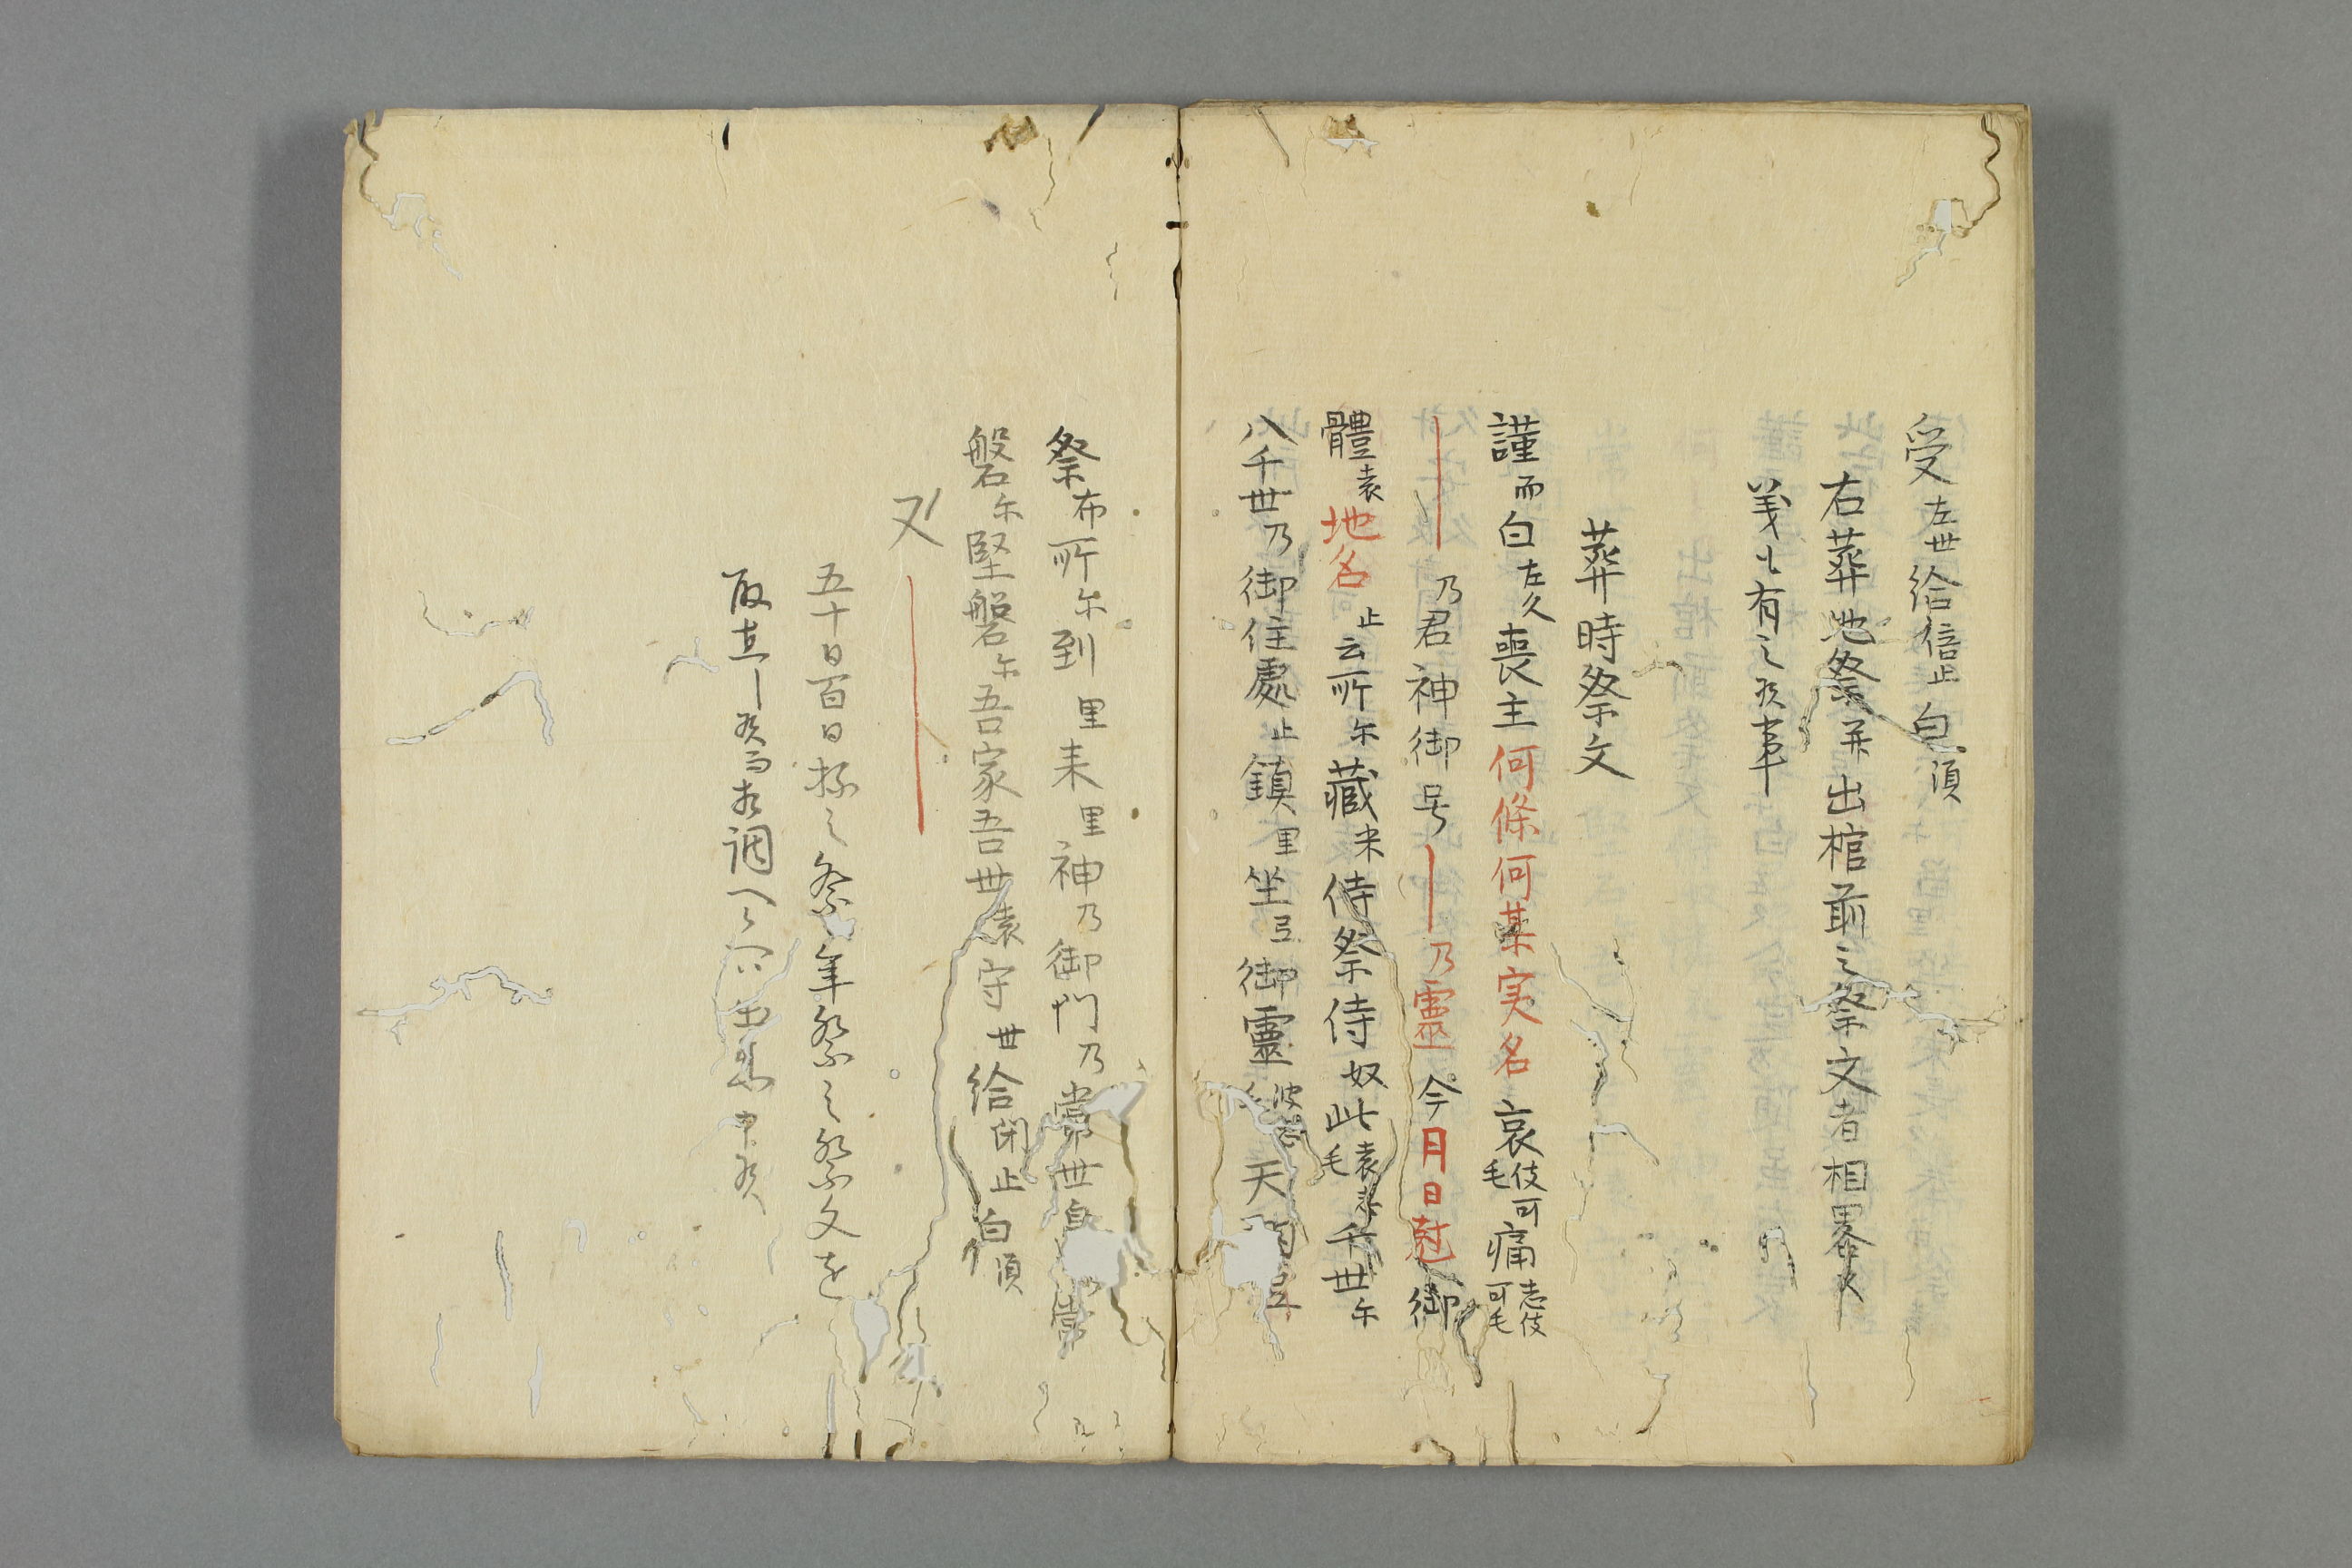 受左世給倍止白須
右葬地祭并出棺前之祭文者相畧候
義も有之候事
葬時祭文
謹而白左久喪主何條何某実名哀伎可毛痛志伎可毛
乃君神御号 乃靈今月日
體袁地名止云所尓藏米侍祭侍奴此袁毛千世尓
八千世乃御住處止鎮里坐弖御靈波天
祭布所尓到里来里神乃御門乃常世
磐尓堅磐尓吾家吾世袁守世給閉止白須
又
五十日百日祭之祭年祭之祭文を
取立候而相調へ